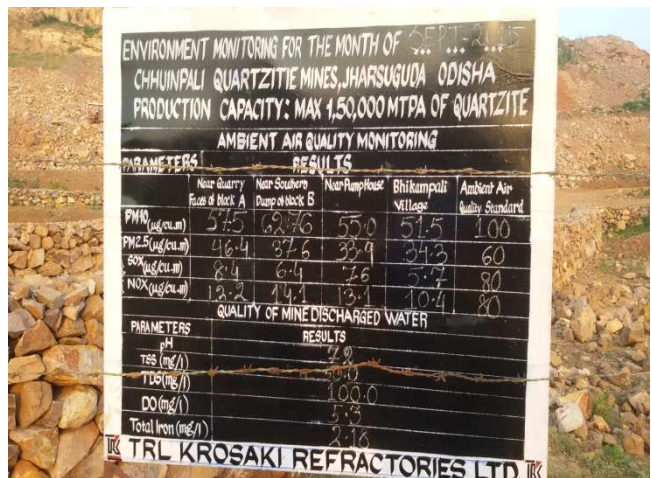 ENVIRONMENT MONITORING FOR THE MONTH OF SEPT-2015
CHHUINPALI QUARTZITIE MINES, JHARSUGUDA ODISHA
PRODUCTION CAPACITY: MAX 1,50,000 MTPA OF QUARTZITE
AMBIENT AIR QUALITY MONITORING
PARAMETERS RESULTS
Near Quarry Faces of block A Near Southern Dump of block B Near Pump House Bhikampali Village Ambient Air Quality Standard
PM10 (µg/cu.m) 57.5 62.76 55.0 51.5 100
PM2.5 (µg/cu.m) 46.4 37.6 33.9 34.3 60
SOX (µg/cu.m) 8.4 6.4 7.6 5.7 80
NOX (µg/cu.m) 13.2 14.1 13.1 10.4 80
QUALITY OF MINE DISCHARGED WATER
PARAMETERS RESULTS
pH 7.2
TSS (mg/l)
TDS (mg/l) 100.0
DO (mg/l) 5.3
Total Iron (mg/l) 2.16
TRK TRL KROSAKI REFRACTORIES LTD. TRK